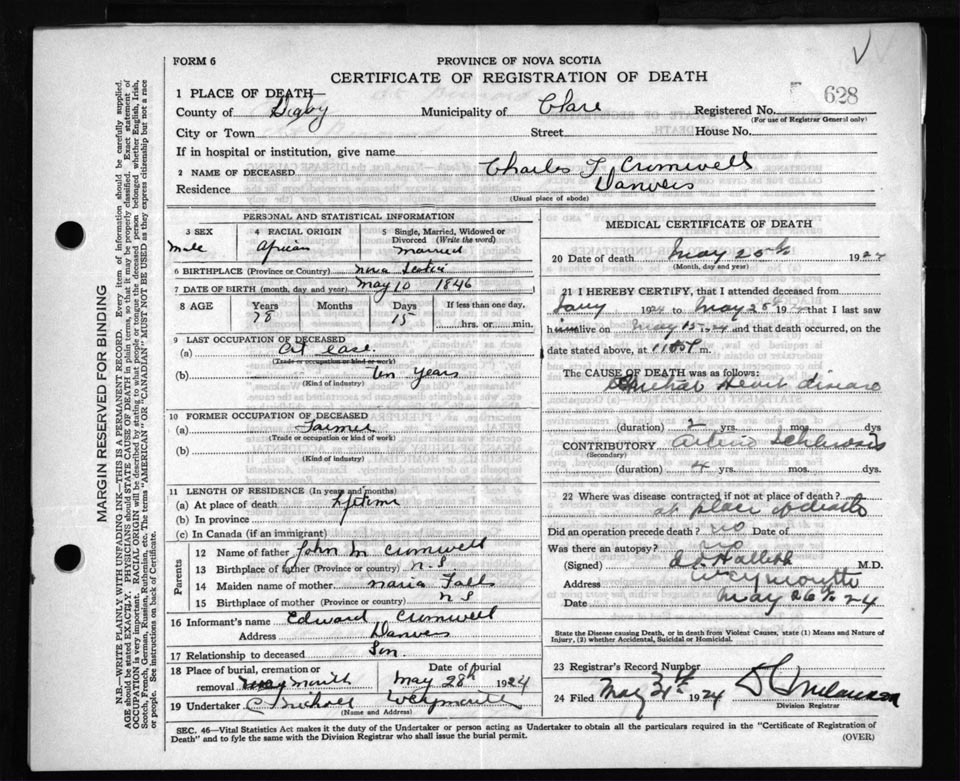 FORM 6
PROVINCE OF NOVA SCOTIA
CERTIFICATE OF REGISTRATION OF DEATH
628
1 PLACE OF DEATH—
County of Digby Municipality of Clare Registered No.
(For use of Registrar General only)
City or Town Street House No.
If in hospital or institution, give name
2 NAME OF DECEASED Charles T Cromwell
Residence Danvers
(Usual place of abode)
PERSONAL AND STATISTICAL INFORMATION
3 SEX Male
4 RACIAL ORIGIN African
5 Single, Married, Widowed or Divorced (Write the word) Married
6 BIRTHPLACE (Province or Country) Nova Scotia
7 DATE OF BIRTH (month, day and year) May 10 1846
8 AGE Years 78 Months Days 15 If less than one day, hrs. or min.
9 LAST OCCUPATION OF DECEASED
(a) At ease.
(Trade or occupation or kind or work)
(b) Ten years
(Kind of industry)
10 FORMER OCCUPATION OF DECEASED
(a) Farmer
(Trade or occupation or kind of work)
(b)
(Kind of industry)
11 LENGTH OF RESIDENCE (In years and months)
(a) At place of death Lifetime
(b) In province
(c) In Canada (if an immigrant)
Parents
12 Name of father John M Cromwell
13 Birthplace of father (Province or country) N.S
14 Maiden name of mother Maria Falls
15 Birthplace of mother (Province or country) N S
16 Informant's name Edward Cromwell
Address Danvers
17 Relationship to deceased Son
18 Place of burial, cremation or removal Weymouth Date of burial May 28th 1924
19 Undertaker C Nichols Weymouth
(Name and Address)
MEDICAL CERTIFICATE OF DEATH
20 Date of death May 25th 1924
(Month, day and year)
21 I HEREBY CERTIFY, that I attended deceased from
Jany 1924 to May 25th 192 that I last saw
him alive on May 15th, 24 and that death occurred, on the
date stated above, at 11 P m.
The CAUSE OF DEATH was as follows:
Heart disease
(duration) 2 yrs. mos. dys
CONTRIBUTORY Arterio Schlerosis
(Secondary)
(duration) 4 yrs. mos. dys.
22 Where was disease contracted if not at place of death?
at place of death
Did an operation precede death? no Date of
Was there an autopsy? no
(Signed) M.D.
Address Weymouth
Date May 26th 24
State the Disease causing Death, or in death from Violent Causes, state (1) Means and Nature of Injury, (2) whether Accidental, Suicidal or Homicidal.
23 Registrar's Record Number
24 Filed May 31st 1924
Division Registrar
SEC. 46—Vital Statistics Act makes it the duty of the Undertaker or person acting as Undertaker to obtain all the particulars required in the "Certificate of Registration of
Death" and to fyle the same with the Division Registrar who shall issue the burial permit.
(OVER)
MARGIN RESERVED FOR BINDING
N.B.—WRITE PLAINLY WITH UNFADING INK—THIS IS A PERMANENT RECORD. Every item of information should be carefully supplied.
AGE should be stated EXACTLY. PHYSICIANS should STATE CAUSE OF DEATH in plain terms, so that it may be properly classified. Exact statement of
OCCUPATION is very important. RACIAL ORIGIN will be described by stating to what people or tongue the deceased person belonged whether English, Irish,
Scotch, French, German, Russian, Ruthenian, etc. The terms "AMERICAN" OR "CANADIAN" MUST NOT BE USED as they express citizenship but not a race
or people. See instructions on back of Certificate.